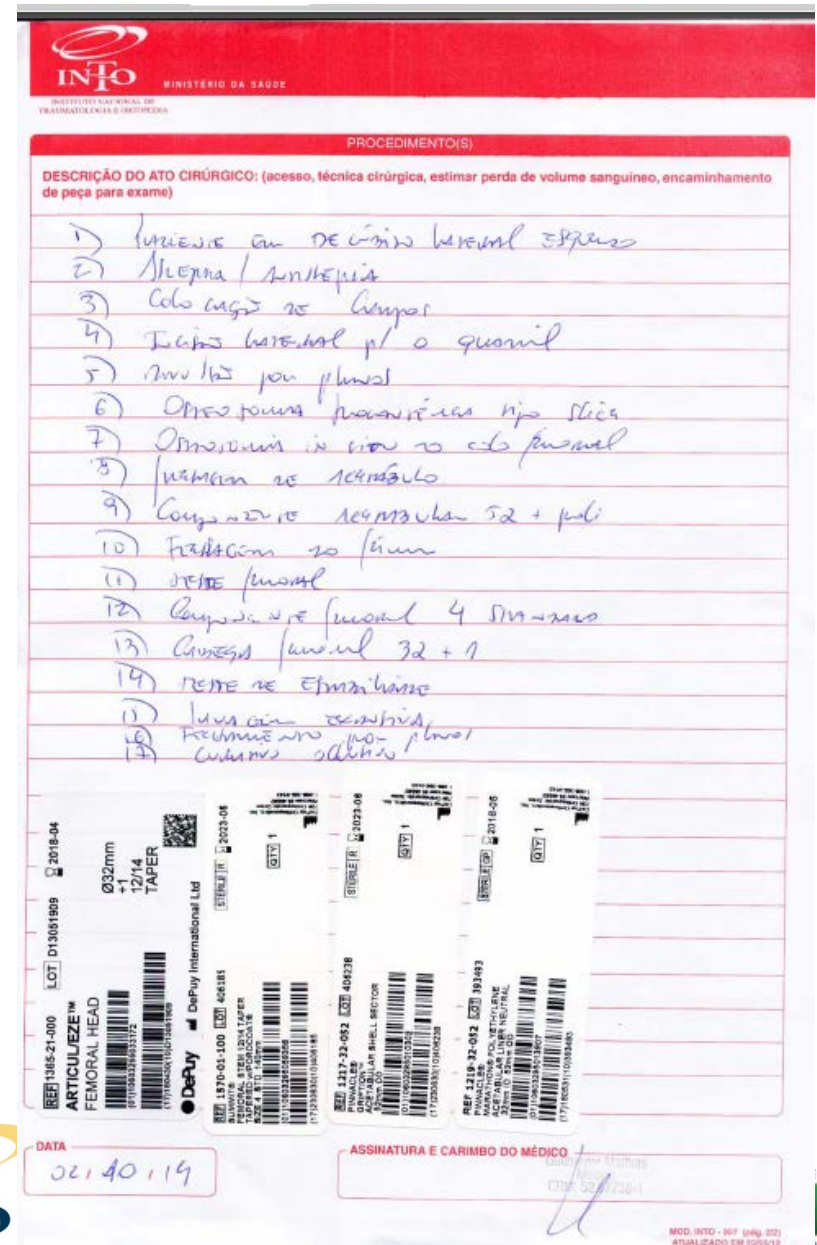 INTO
MINISTÉRIO DA SAÚDE
INSTITUTO NACIONAL DE
TRAUMATOLOGIA E ORTOPEDIA
PROCEDIMENTO(S)
DESCRIÇÃO DO ATO CIRÚRGICO: (acesso, técnica cirúrgica, estimar perda de volume sanguíneo, encaminhamento
de peça para exame)
1) Paciente em decúbito lateral esquerdo
2) Assepsia / antissepsia
3) Colocação de campos
4) Incisão lateral p/ o quadril
5) por planos
6) Osteotomia trocantérica tipo slice
7) Osteotomia in situ do colo femoral
8) de acetábulo
9) Componente acetabular 52 + poli
10) Fresagem do fêmur
11) Teste femoral
12) Componente femoral 4 standard
13) Cabeça femoral 32 + 1
14) Teste de estabilidade
15) Lavagem exaustiva
16) Fechamento por planos
17) Curativo oclusivo
REF 1365-21-000 LOT D13051909 2018-04
ARTICUL/EZE™
FEMORAL HEAD
Ø32mm
+1
12/14
TAPER
DePuy DePuy International Ltd
REF 1570-01-100 LOT 406185 STERILE R 2023-06
SUMMIT®
FEMORAL STEM 12/14 TAPER
TAPERED w/POROCOAT®
SIZE 4 STD 140mm
QTY 1
REF 1217-32-052 LOT 406238 STERILE R 2023-06
PINNACLE®
GRIPTION™
ACETABULAR SHELL SECTOR
52mm OD
QTY 1
REF 1219-32-052 LOT 393493 STERILE GP 2018-05
PINNACLE®
MARATHON® POLYETHYLENE
ACETABULAR LINER NEUTRAL
32mm ID 52mm OD
QTY 1
DATA
02/10/14
ASSINATURA E CARIMBO DO MÉDICO
MOD. INTO - 007 (pág. 2/2)